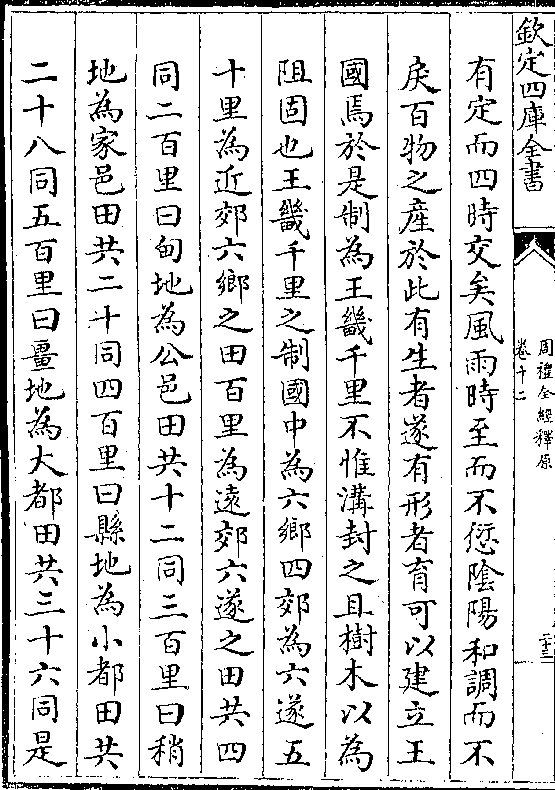 欽定四庫全書
周禮全經釋原
卷十二
二十三
有定而四時交矣風雨時至而不愆陰陽和調而不
戾百物之產於此有生者遂有形者育可以建立王
國焉於是制為王畿千里不惟溝封之且樹木以為
阻固也王畿千里之制國中為六鄉四郊為六遂五
十里為近郊六鄉之田百里為遠郊六遂之田共四
同二百里曰甸地為公邑田共十二同三百里曰稍
地為家邑田共二十同四百里曰縣地為小都田共
二十八同五百里曰畺地為大都田共三十六同是